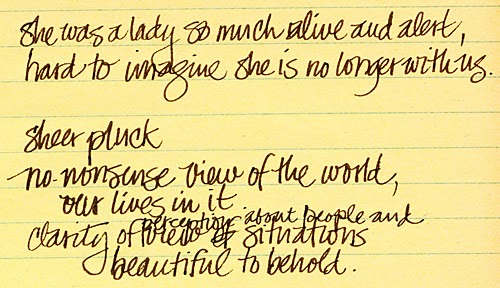 She was a lady so much alive and alert,
hard to imagine she is no longer with us.
sheer pluck
no-nonsense view of the world,
our lives in it
perception about people and
clarity of situations
beautiful to behold.